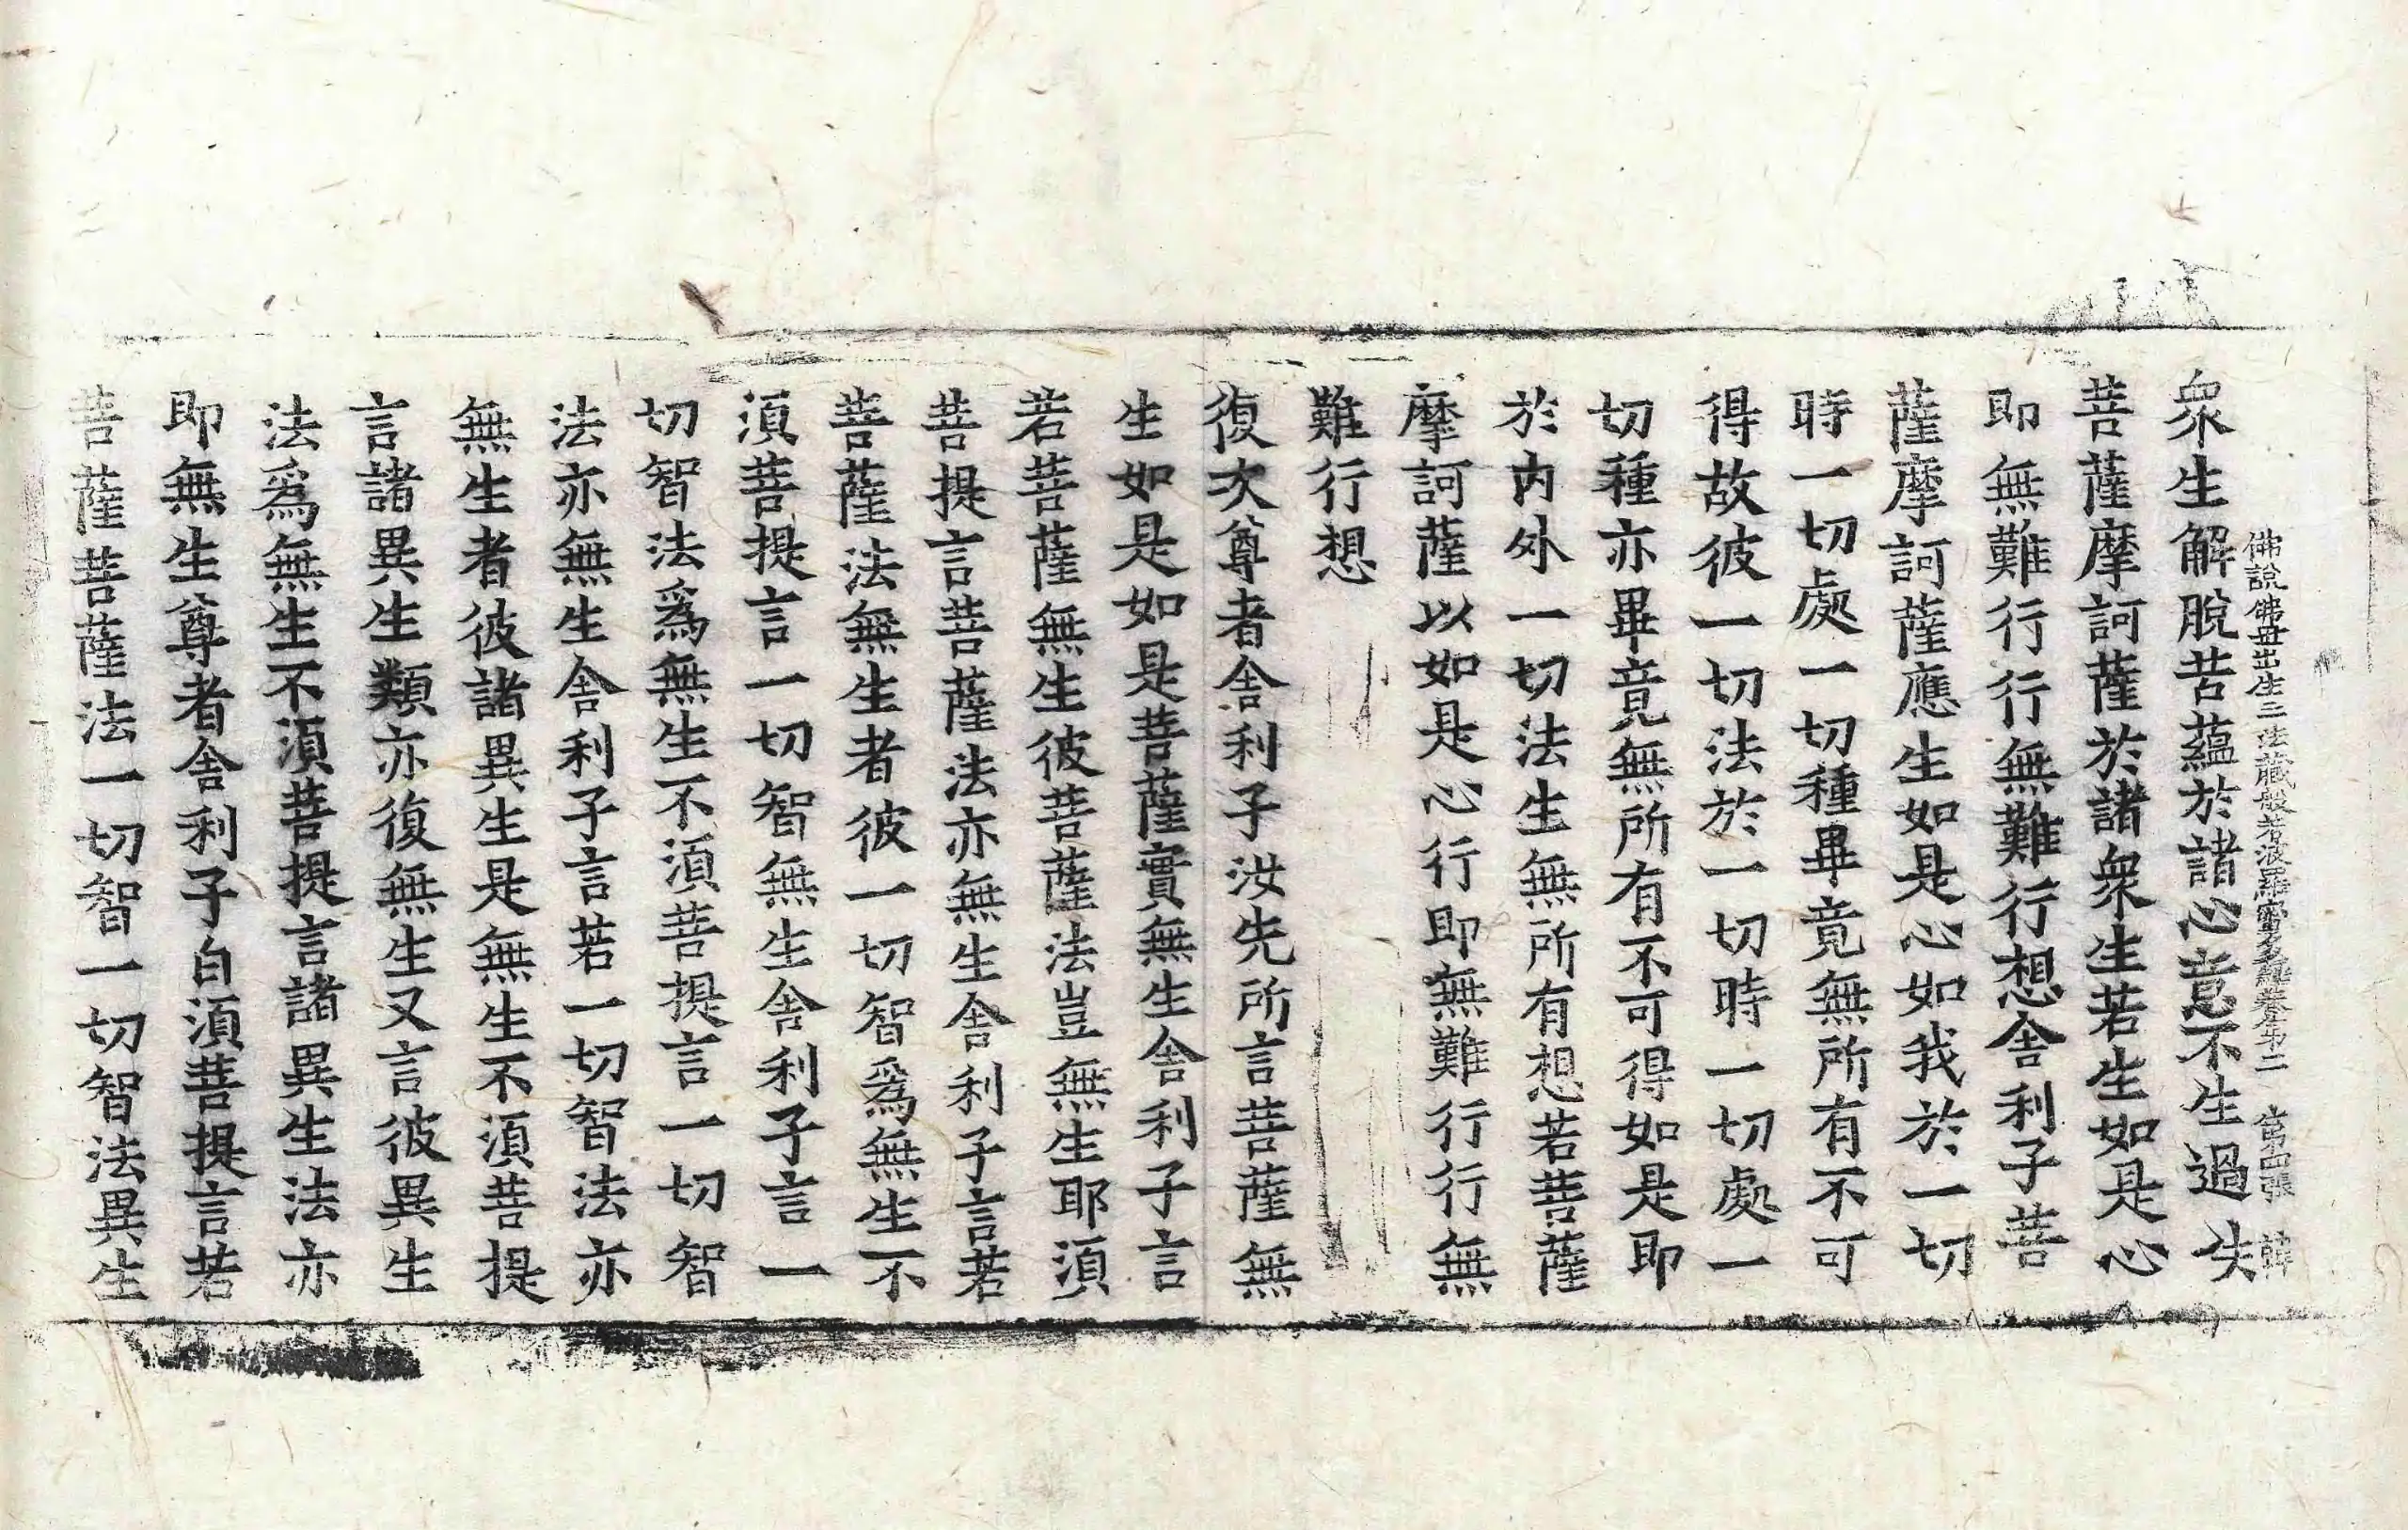 佛說佛母出生三法藏般若波羅蜜多經卷第二　第四張　韓
衆生解脫苦蘊於諸心意不生過失
菩薩摩訶薩於諸衆生若生如是心
即無難行行無難行想舍利子菩
薩摩訶薩應生如是心如我於一切
時一切處一切種畢竟無所有不可
得故彼一切法於一切時一切處一
切種亦畢竟無所有不可得如是即
於内外一切法生無所有想若菩薩
摩訶薩以如是心行即無難行行無
難行想
復次尊者舍利子汝先所言菩薩無
生如是如是菩薩實無生舍利子言
若菩薩無生彼菩薩法豈無生耶須
菩提言菩薩法亦無生舍利子言若
菩薩法無生者彼一切智爲無生不
須菩提言一切智無生舍利子言一
切智法爲無生不須菩提言一切智
法亦無生舍利子言若一切智法亦
無生者彼諸異生是無生不須菩提
言諸異生類亦復無生又言彼異生
法爲無生不須菩提言諸異生法亦
即無生尊者舍利子白須菩提言若
菩薩菩薩法一切智一切智法異生